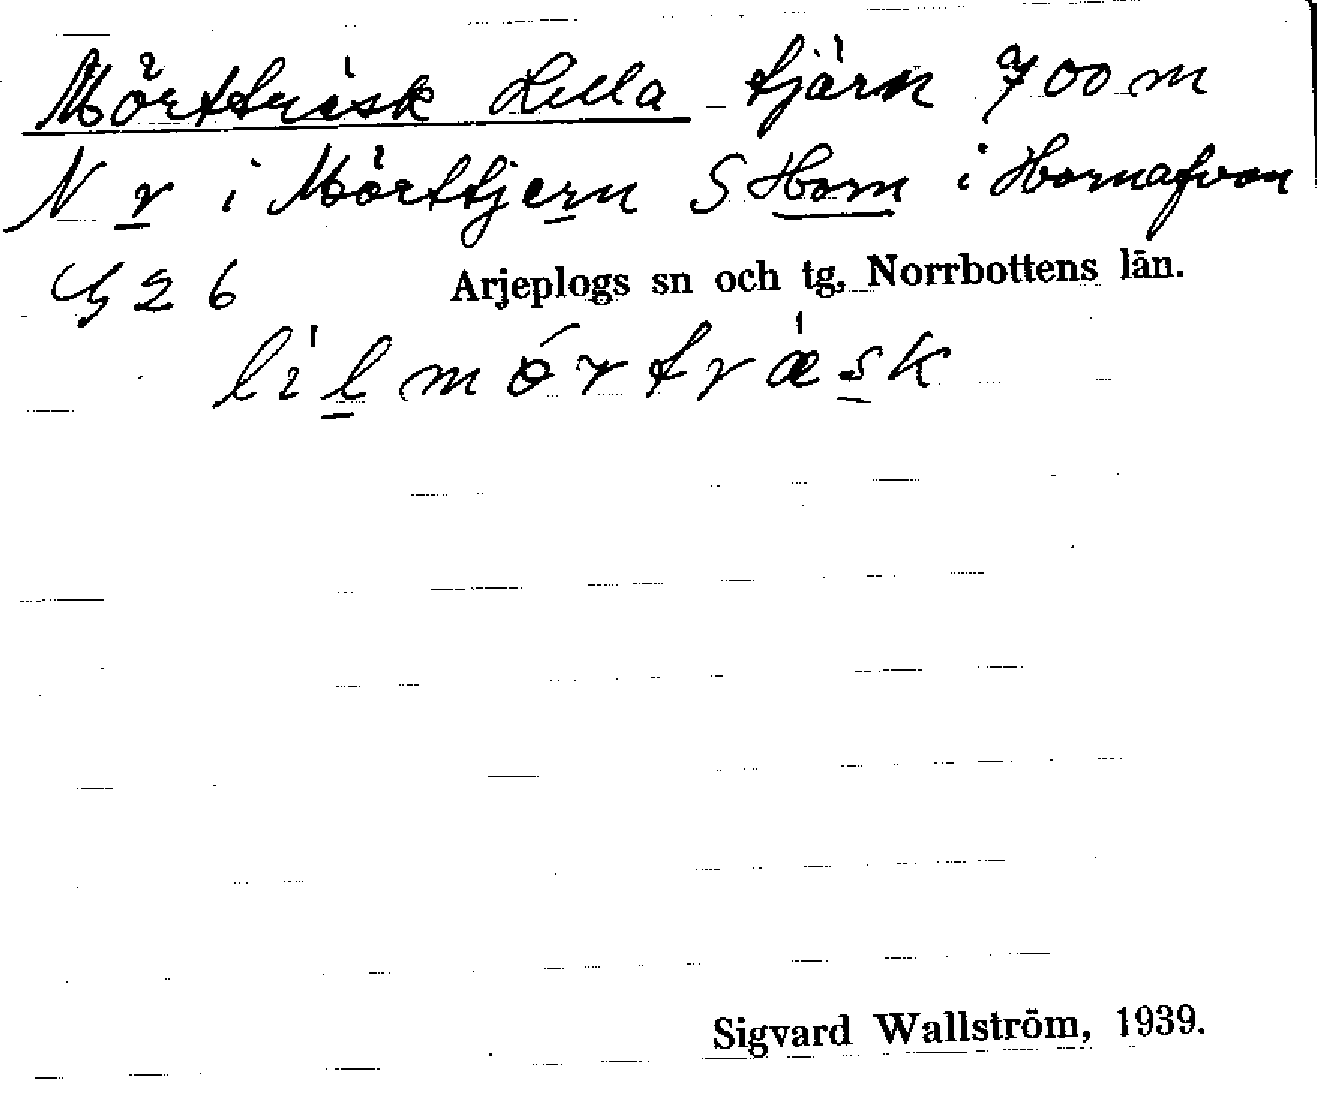 Mörtträsk Lilla tjärn 700 m
N r i Mörttjern S Horn i Hornafvan
G 26 Arjeplogs sn och tg, Norrbottens län.
lilmörtræsk
Sigvard Wallström, 1939.